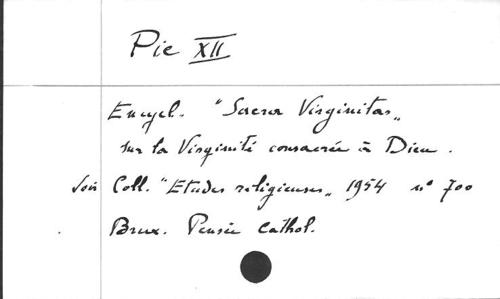 Pie XII
Encycl. "Sacra Virginitas„
sur la Virginité consacrée à Dieu.
Coll. "Etudes religieuses„ 1954 n° 700
Brux. Pensée Cathol.